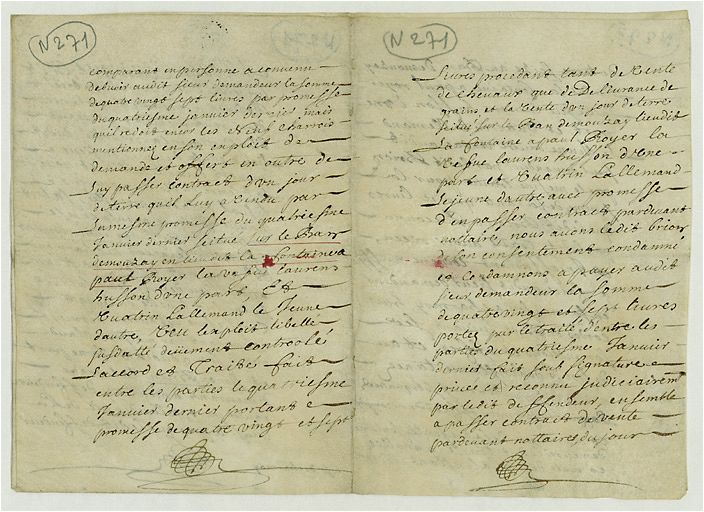 N 271
comparant en personne a convenu
debvoir audit sieur demandeur la somme
de quatre vingt sept livres par promesse
du quatriesme janvier dernier mais
qu'il redoit avec les neuf charrois
mentionnez en son exploit de
demande et offert en outre de
luy passer contract d'un jour
de terre qu'il luy a vendu par
la mesme promesse du quatriesme
Janvier dernier scitué sur le Ban
demouzay en lieudit la fontaine a
paul Royer la vefve laurens
husson d'une part, Et
Vuatrin Lallemand le Jeune
dautre, Veu lexploit libellé
susdatté deüement controolé
Laccord et Traité fait
entre les parties le quatriesme
Janvier dernier portant
promesse de quatre vingt et sept
N 271
Livres procedant tant de vente
de chevaux que de delivrance de
grains et la vente d'un jour de terre
scitué sur le Ban demouzay lieudit
La fontaine a paul Royer la
Vefve laurens husson d'une
part et Vuatrin Lallemand
le jeune dautre, avec promesse
d'en passer contract pardevant
nottaire, nous avons ledit
de son consentement condamné
et Condamnons a payer audit
sieur demandeur la somme
de quatre vingt et sept livres
portez par le traité d'entre les
parties du quatriesme Janvier
dernier fait soub signature
privée et reconnu judiciairemt
par ledit deffendeur, ensemble
a passer contract de vente
pardevant nottaires du jour